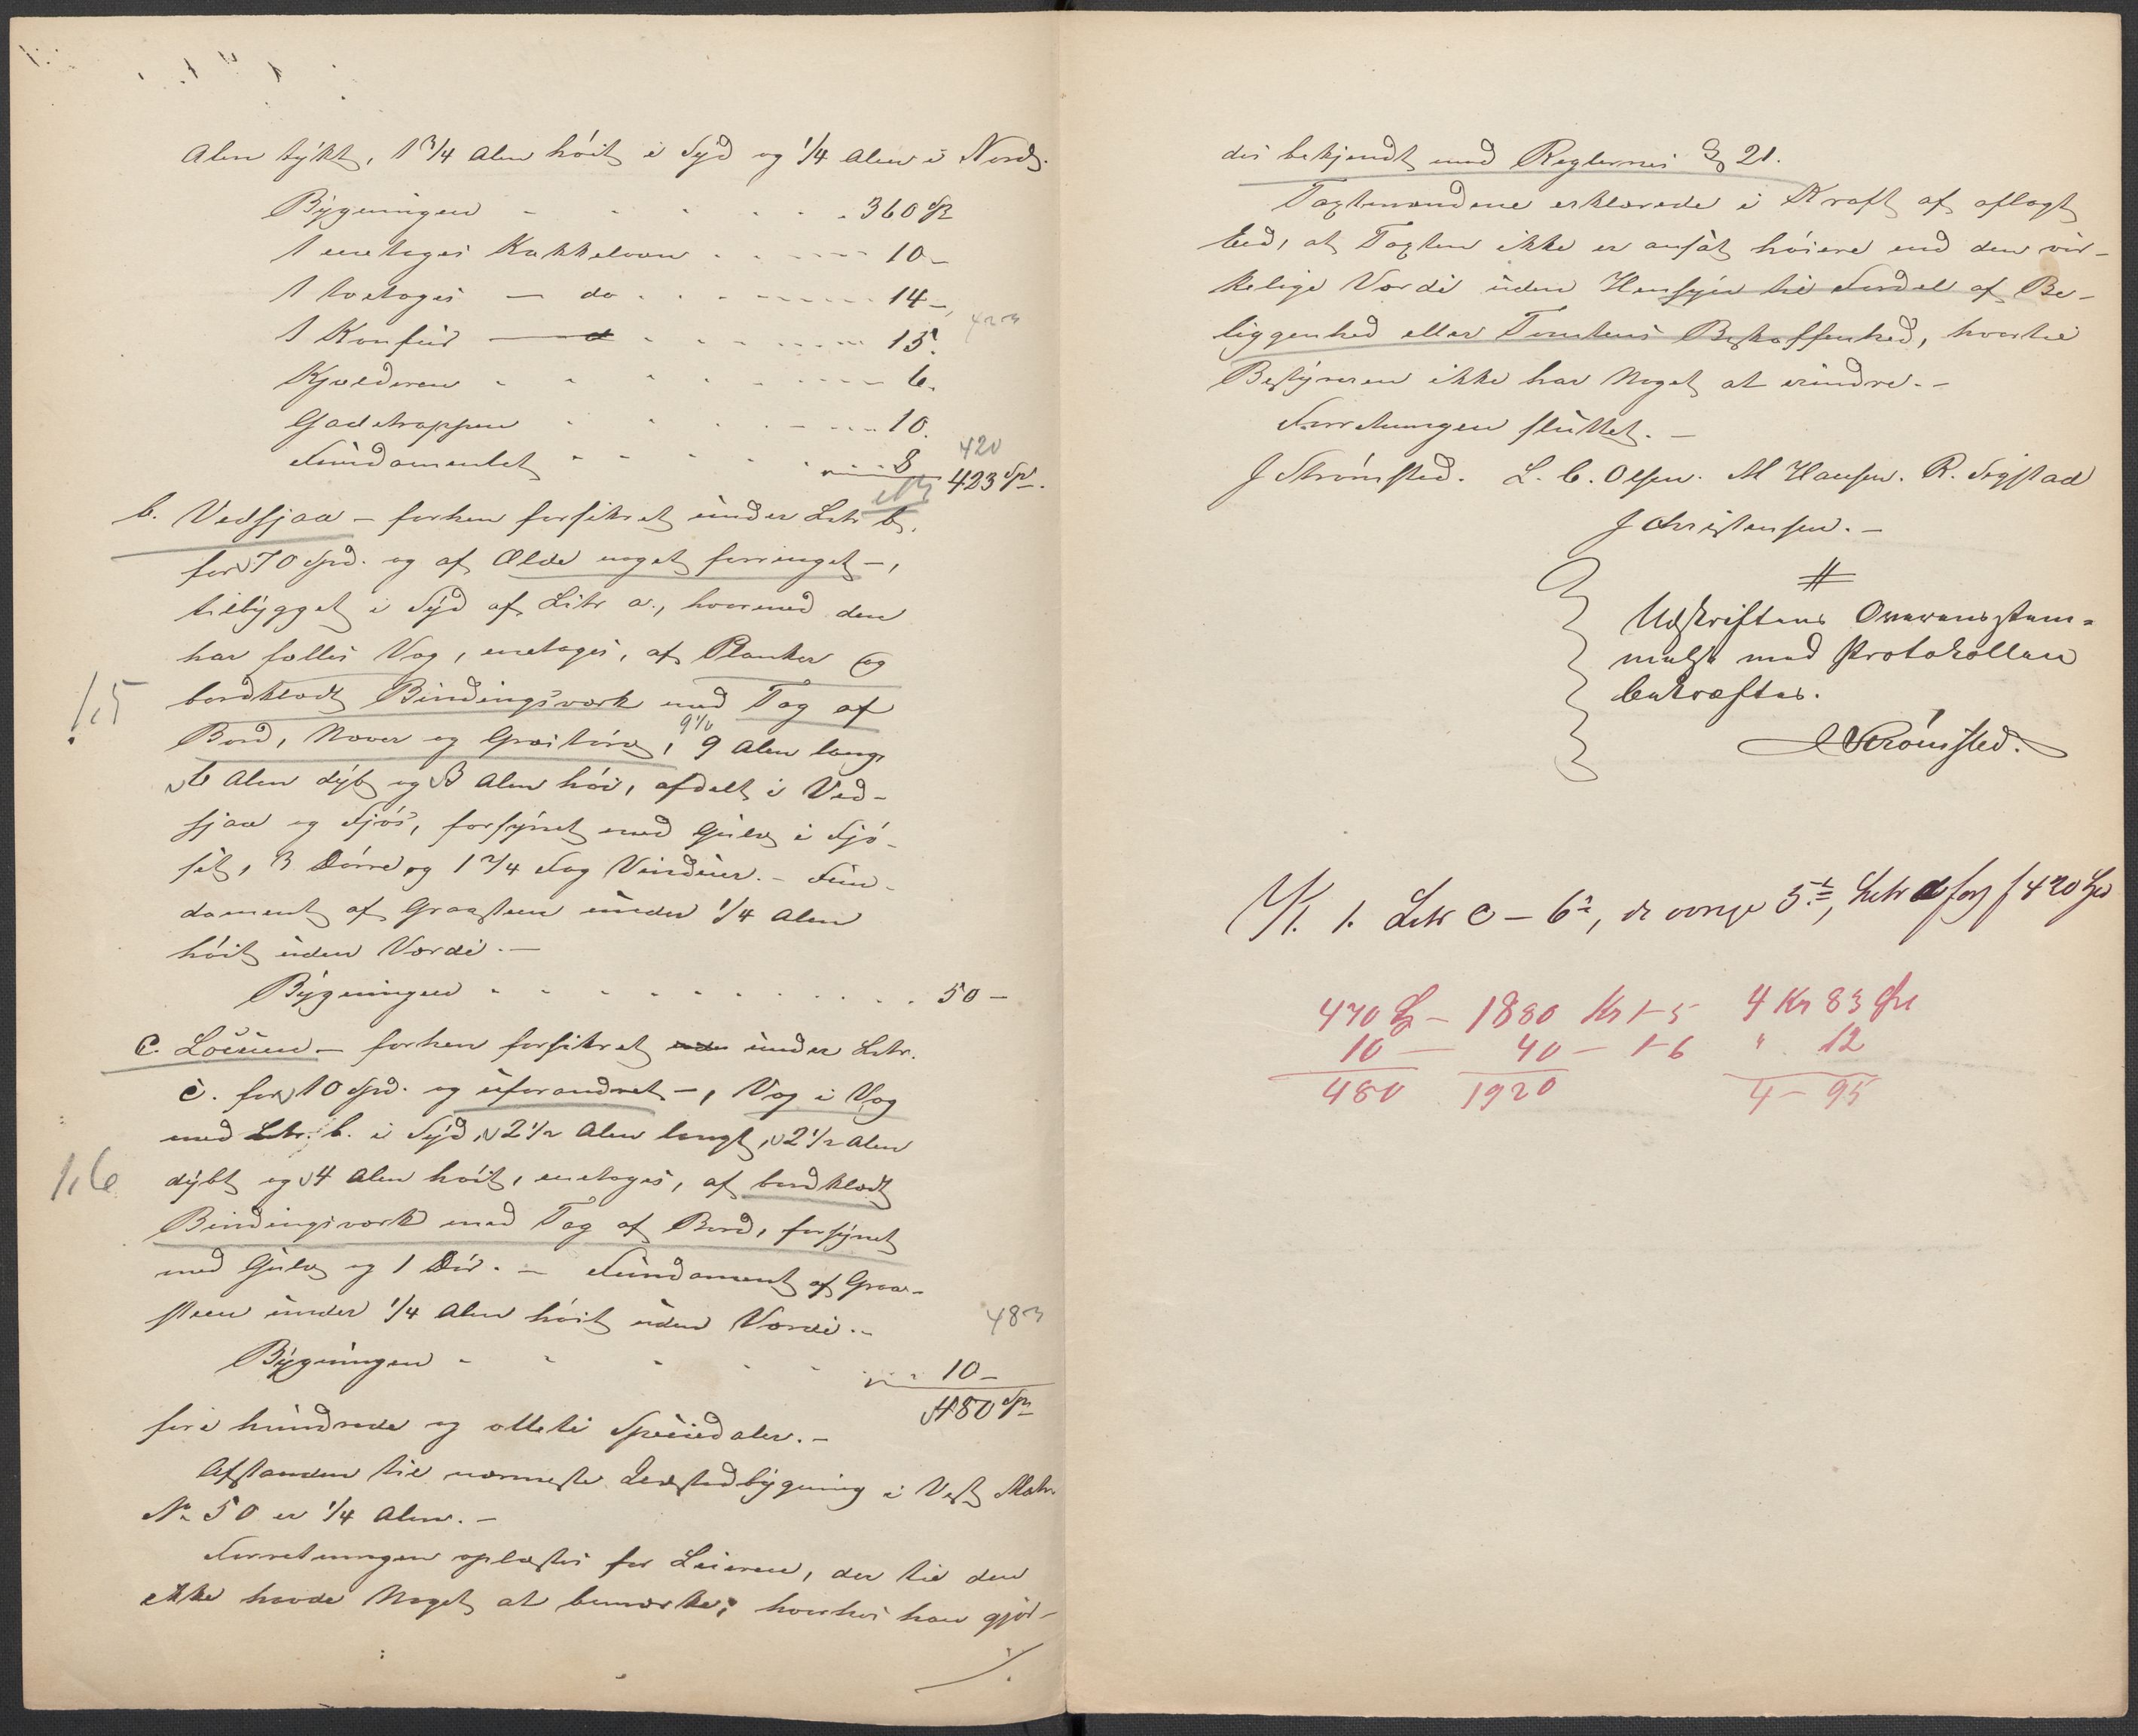 Alen tykt, 1 3/4 Alen höit i Syd og 1/4 Alen i Nord.
Bygningen - - - - - 360 Sp
1 enetages Kakkelovn - - - 10 -
1 toetages — do - - - 14 -
423
1 Komfur - - - 15.
Kjælderen - - - 6.
Gadetrappen - - - 10.
420
Fundamentet - - - 8
423 Sp.
b. Vedsjaa - forhen forsikret under Litr b.
for 70 Spd. og af Ælde noget forringet -,
tilbygget i Syd af Litr a., hvormed den
har fælles Væg, enetages, af Planker og
1,5
bordklædt Bindingsværk med Tag af
9 1/2
Bord, Næver og Græstörv, 9 Alen lang,
6 Alen dyb og 3 Alen höi, afdelt i Ved-
sjaa og Fjös, forsynet med Gulv i Fjö-
set, 3 Dörre og 1 2/4 Fag Vinduer. - Fun-
dament af Graasteen under 1/4 Alen
höit uden Værdi. -
Bygningen - - - - - 50 -
c. Locum - forhen forsikret under Litr.
c. for 10 Spd. og uforandret -, Væg i Væg
med Litr. b. i Syd, 2 1/2 Alen langt, 2 1/2 Alen
1,6
dybt og 4 Alen höit, enetages, af bordklædt
Bindingsværk med Tag af Bord, forsynet
med Gulv og 1 Dör. - Fundament af Graa-
steen under 1/4 Alen höit uden Værdi. -
483
Bygningen - - - - 10 -
480 Sp
fire hundrede og otteti Speciedaler. -
Afstanden til nærmeste Løxstedbygning i Vest Matr.
No 50 er 1/4 Alen. -
Forretningen oplæstes for Leieren, der til den
ikke havde Noget at bemærke; hvorhos han gjör-
./.
des bekjendt med Reglernes § 21.
Taxtmændene erklærede i Kraft af aflagt
Eed, at Taxten ikke er ansat höiere end den vir-
kelige Værdi uden Hensyn til Fordel af Be-
liggenhed eller Tomtens Beskaffenhed, hvortil
Bestyreren ikke har Noget at erindre. -
Forretningen sluttet. -
J Strömsted. L. C. Olsen. M Hansen. R. Sigstad
J Christensen. -
#
Udskriftens Overensstem-
melse med Protokollen
bekræftes.
J Strömsted.
1. Litr c - 6te, de övrige 5te, Litr a for 420 Spd
470 Sp - 1880 Kr 1-5 4 Kr 83 Øre
10 — 40 - 1-6 " 12
480 1920 4 - 95